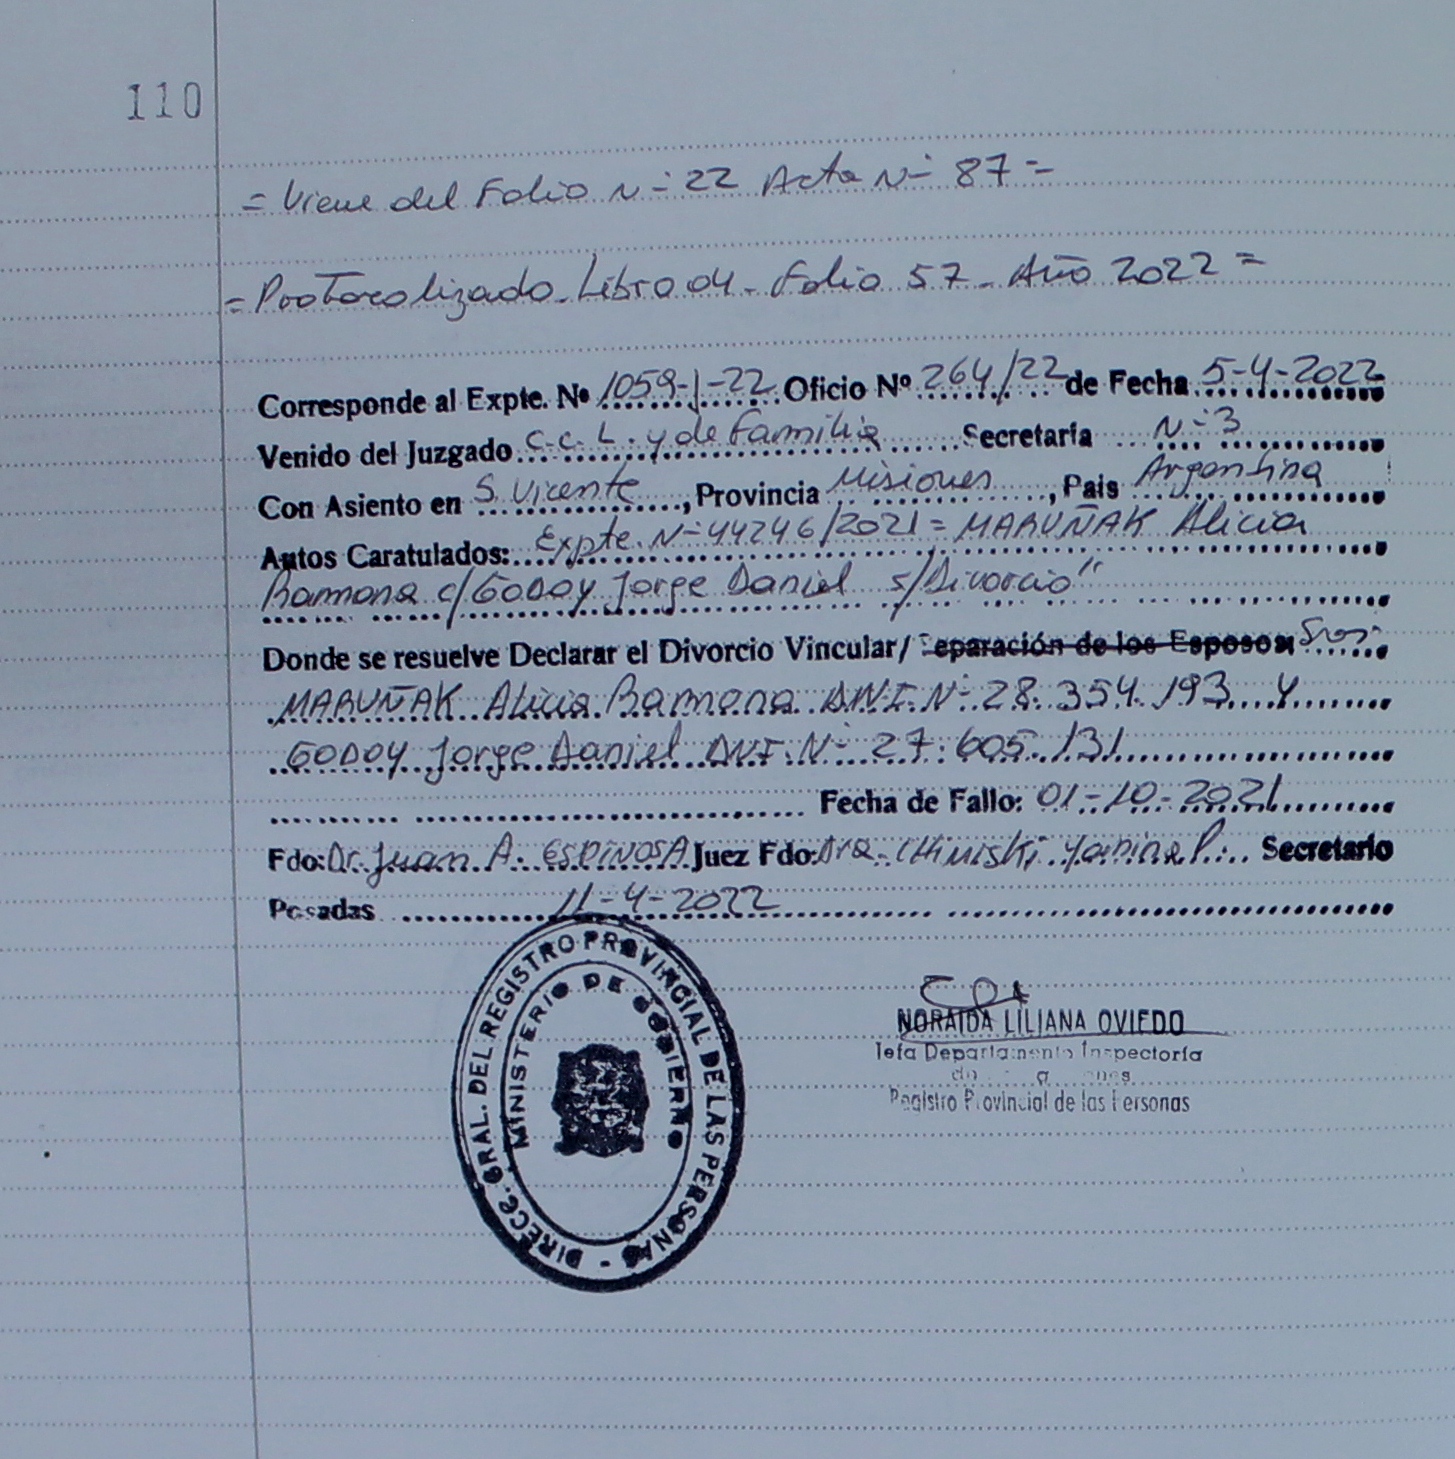 110
= Viene del Folio N- 22 Acta N- 87 =
= Protocolizado - Libro 04 - Folio 57 - Año 2022 =
Corresponde al Expte. Nº 1059-J-22 Oficio Nº 264/22 de Fecha 5-4-2022
Venido del Juzgado C.C.L. y de Familia Secretaría N- 3
Con Asiento en S. Vicente, Provincia Misiones, Pais Argentina
Autos Caratulados: Expte. N- 44246/2021 = MARUÑAK Alicia
Ramona c/ GODOY Jorge Daniel s/Divorcio"
Donde se resuelve Declarar el Divorcio Vincular/ Separación de los Esposos Sres.
MARUÑAK Alicia Ramona DNI. N- 28.354.193 y
GODOY Jorge Daniel DNI. N- 27.605.131
Fecha de Fallo: 01-10-2021
Fdo: Dr. Juan A. ESPINOSA Juez Fdo: Dra. Yanina P. Secretario
Posadas 11-4-2022
DIRECC. GRAL. DEL REGISTRO PROVINCIAL DE LAS PERSONAS -
MINISTERIO DE GOBIERNO
NORAIDA LILIANA OVIEDO
Jefa Departamento Inspectoría
Registro Provincial de las Personas